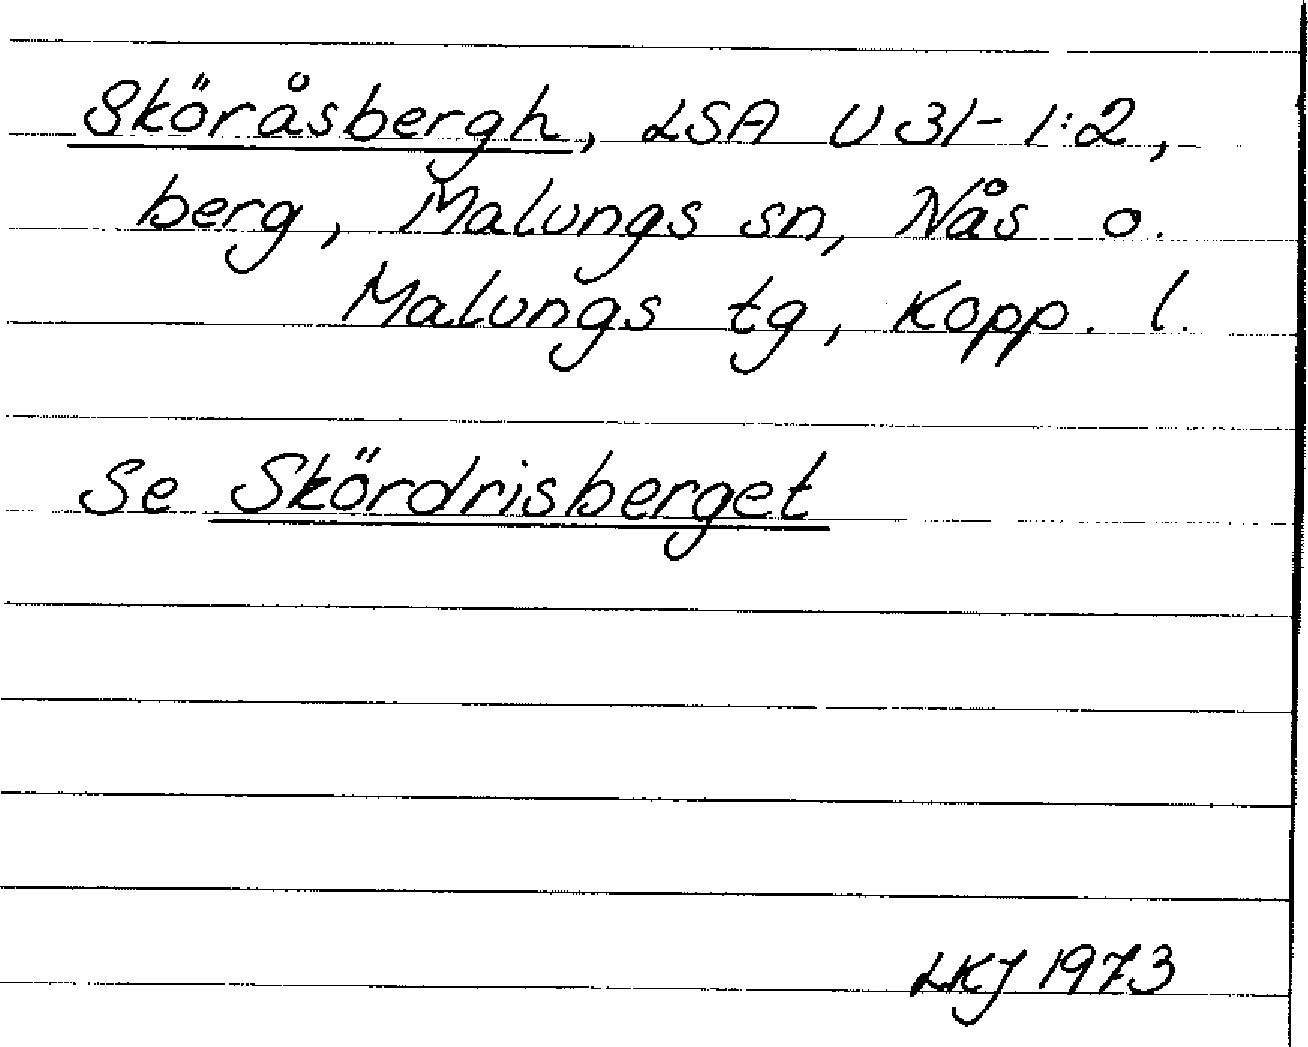 Sköråsbergh, LSA U 31-1:2,
berg, Malungs sn, Nås o.
Malungs tg, Kopp. l.
Se Skördrisberget
LKJ 1973